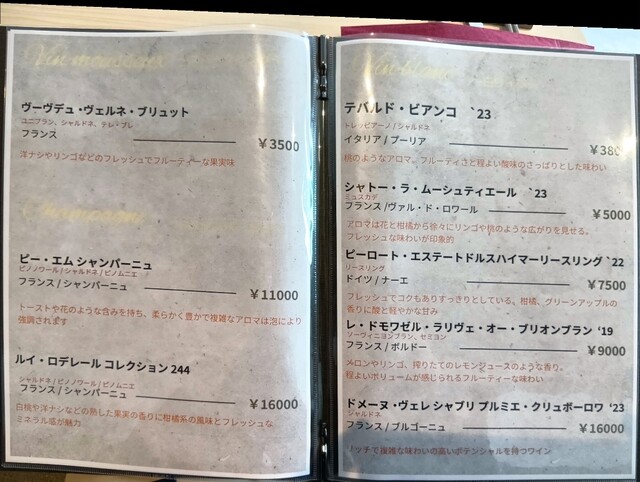 Vin mousseux
ヴーヴデュ・ヴェルネ・ブリュット
ユニブラン、シャルドネ、テレ・ブレ
フランス ¥3500
洋ナシやリンゴなどのフレッシュでフルーティーな果実味
ピー・エム シャンパーニュ
ピノノワール / シャルドネ / ピノムニエ
フランス / シャンパーニュ ¥11000
トーストや花のような含みを持ち、柔らかく豊かで複雑なアロマは泡により
強調されます
ルイ・ロデレール コレクション 244
シャルドネ / ピノノワール / ピノムニエ
フランス / シャンパーニュ ¥16000
白桃や洋ナシなどの熟した果実の香りに柑橘系の風味とフレッシュな
ミネラル感が魅力
テバルド・ビアンコ `23
トレッビアーノ / シャルドネ
イタリア / プーリア ¥380
桃のようなアロマ。フルーティさと程よい酸味のさっぱりとした味わい
シャトー・ラ・ムーシュティエール `23
ミュスカデ
フランス /ヴァル・ド・ロワール ¥5000
アロマは花と柑橘から徐々にリンゴや桃のような広がりを見せる。
フレッシュな味わいが印象的
ピーロート・エステートドルスハイマーリースリング `22
リースリング
ドイツ / ナーエ ¥7500
フレッシュでコクもありすっきりとしている。柑橘、グリーンアップル
の香りに酸と軽やかな甘み
レ・ドモワゼル・ラリヴェ・オー・ブリオンブラン '19
ソーヴィニヨンブラン、セミヨン
フランス / ボルドー ¥9000
メロンやリンゴ、搾りたてのレモンジュースのような香り。
程よいボリュームが感じられるフルーティーな味わい
ドメーヌ・ヴェレ シャブリ プルミエ・クリュボーロワ '23
シャルドネ
フランス / ブルゴーニュ ¥16000
リッチで複雑な味わいの高いポテンシャルを持つワイン